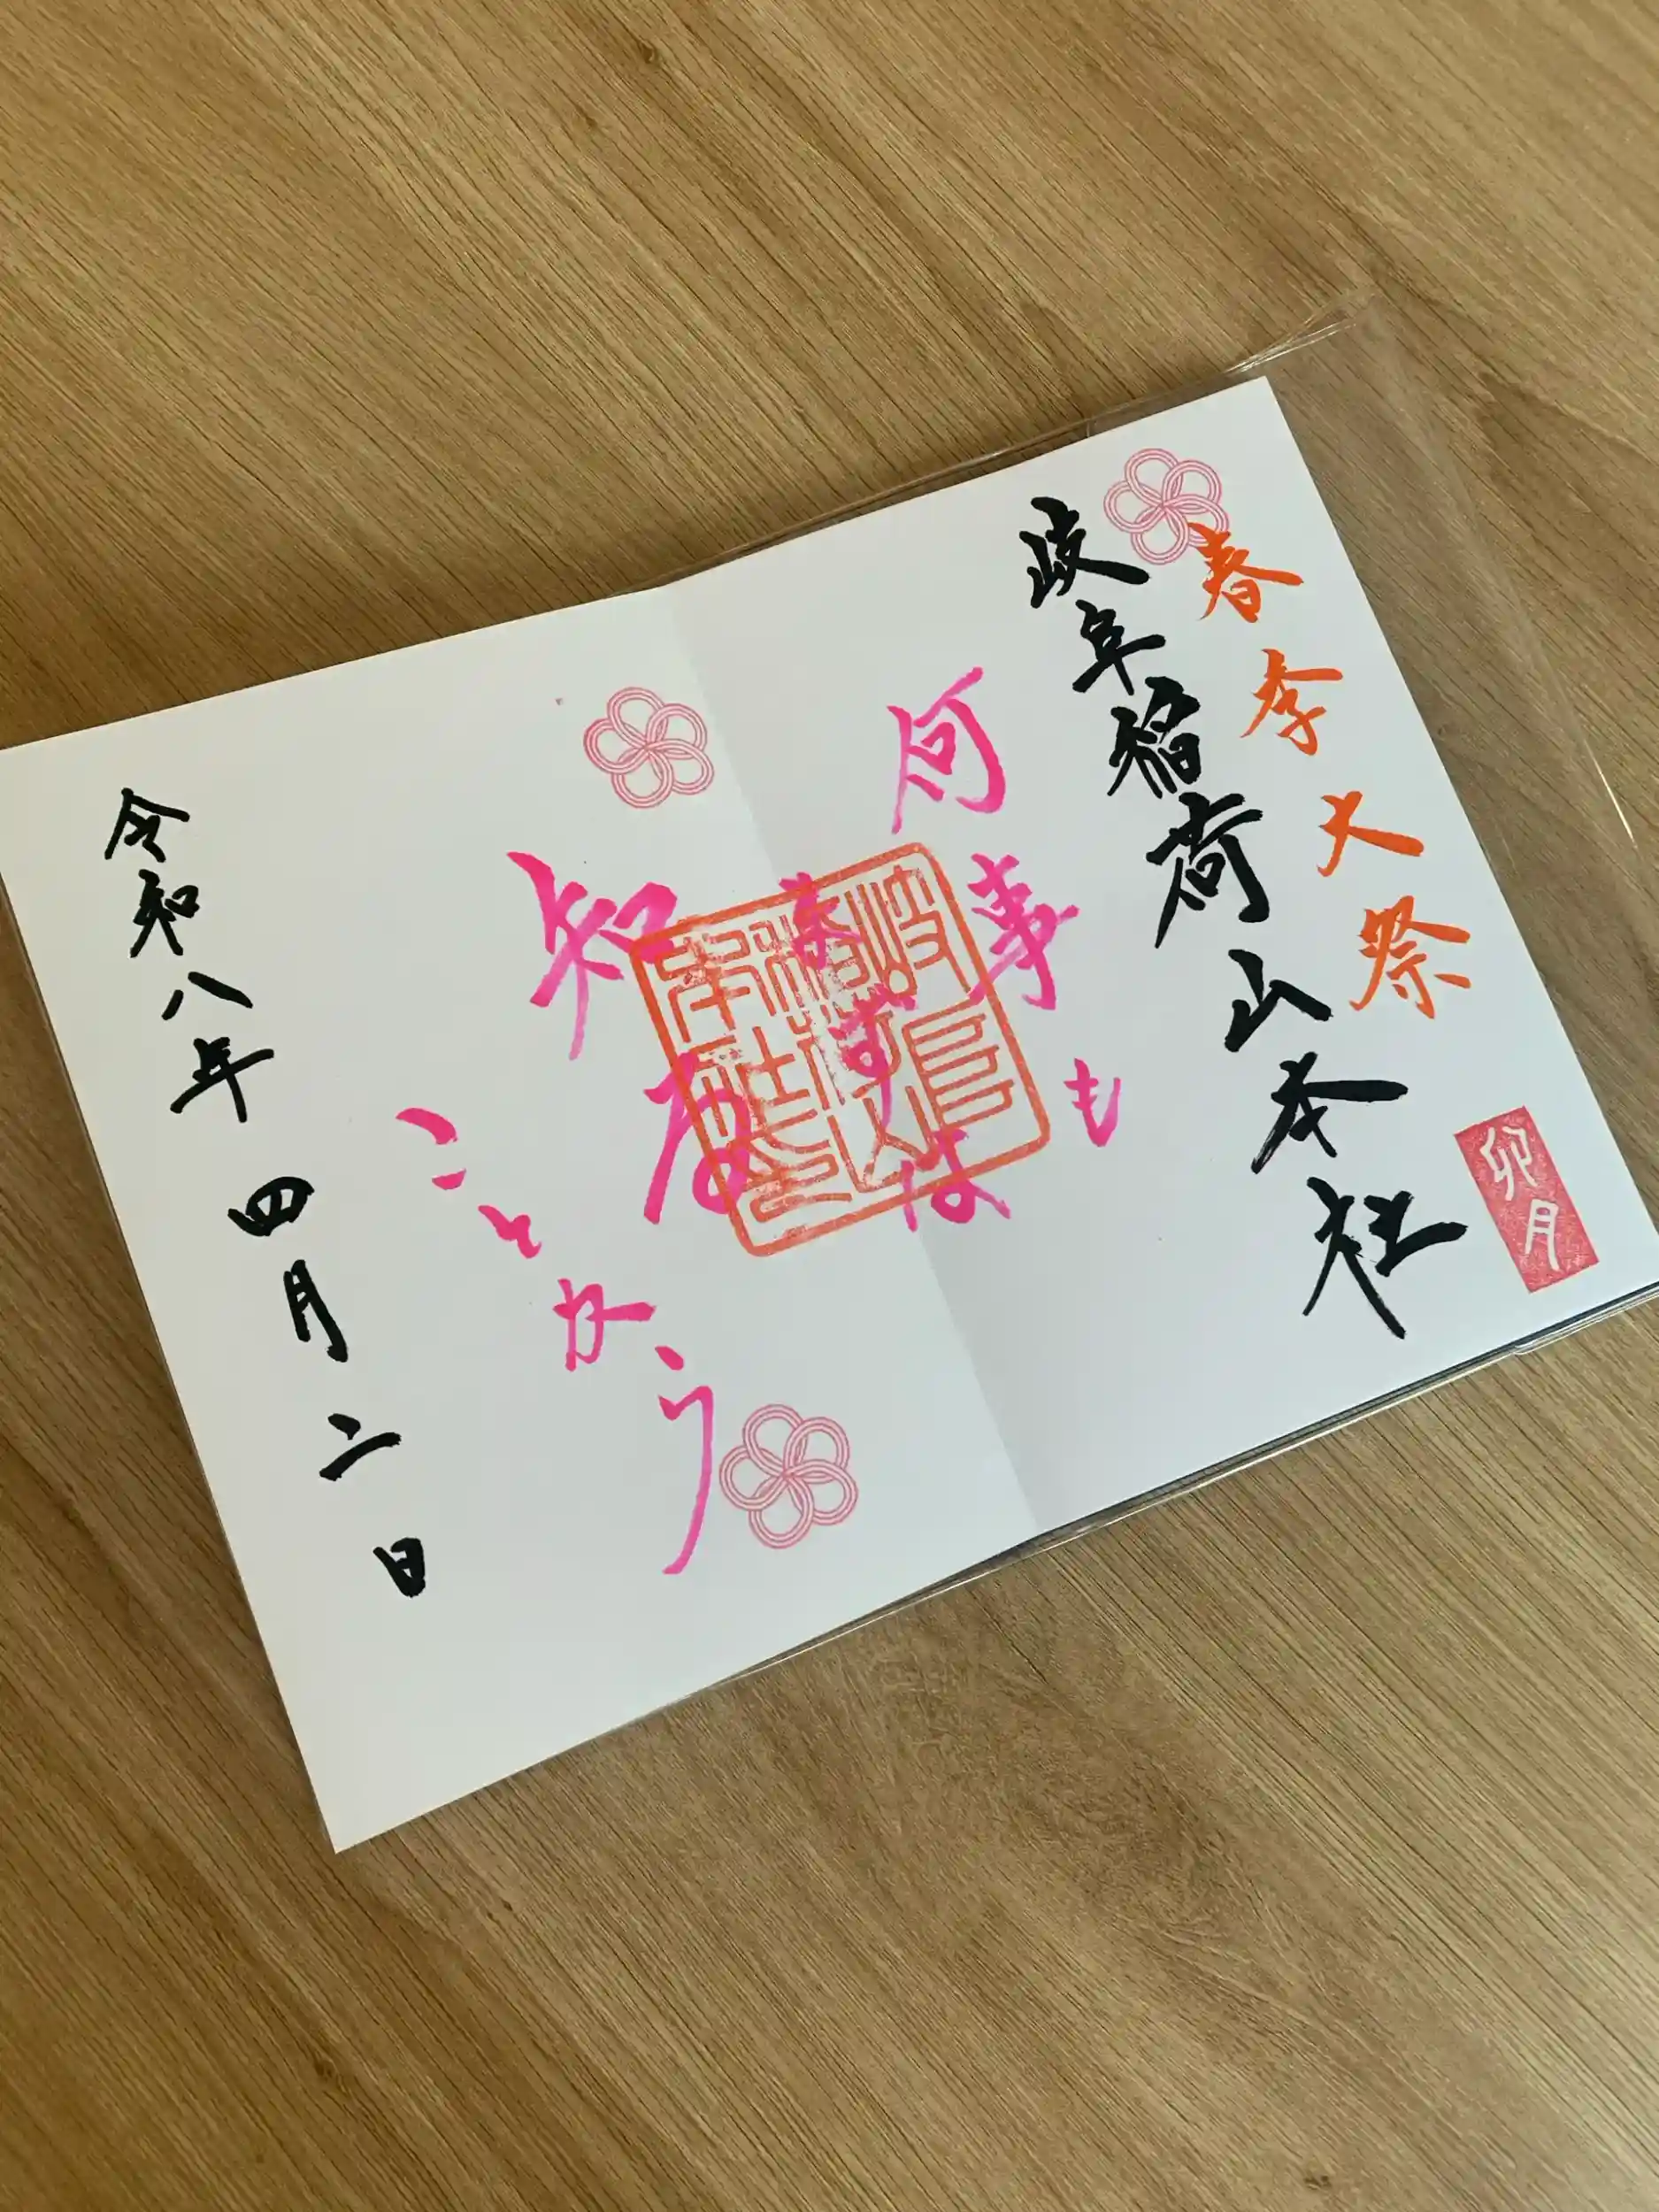 春季大祭
卯月
岐阜稲荷山本社
何事も
まずは
知る
ことから
岐阜
稲荷山
本社印
令和八年 四月二日